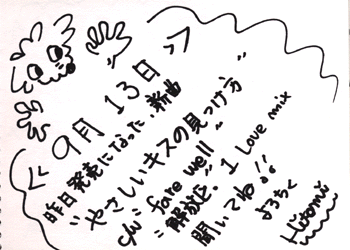 9月13日
昨日発売になった、新曲
"やさしいキスの見つけ方"
c/w "fare well"
"解放区" 1 Love mix
聞いてね!!
よろちく
Hitomi